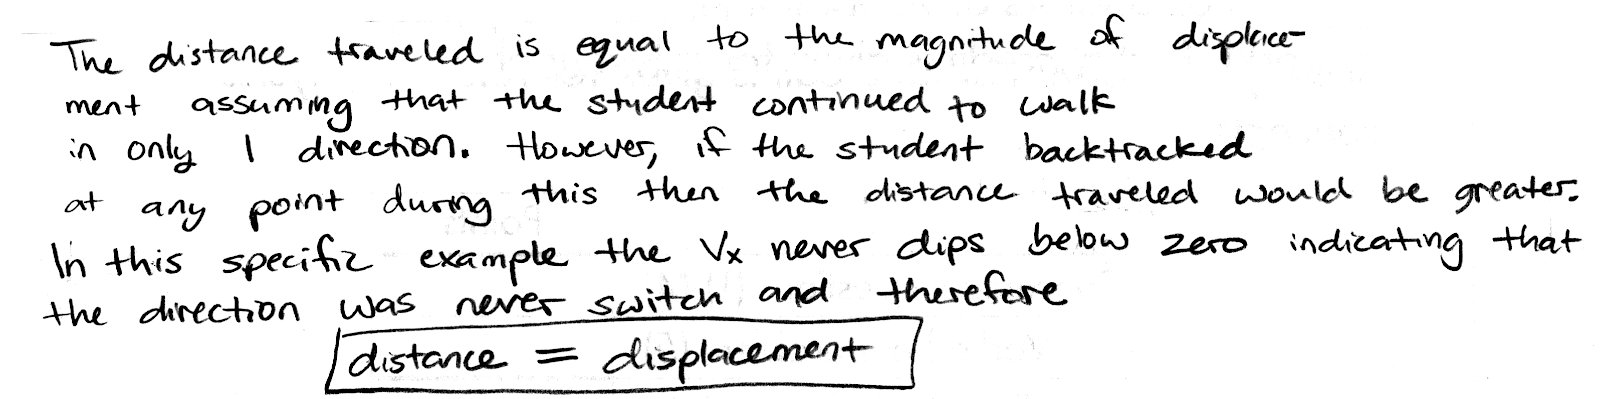 The distance traveled is equal to the magnitude of displace-
ment assuming that the student continued to walk
in only 1 direction. However, if the student backtracked
at any point during this then the distance traveled would be greater.
In this specific example the Vx never dips below zero indicating that
the direction was never switch and therefore
distance = displacement